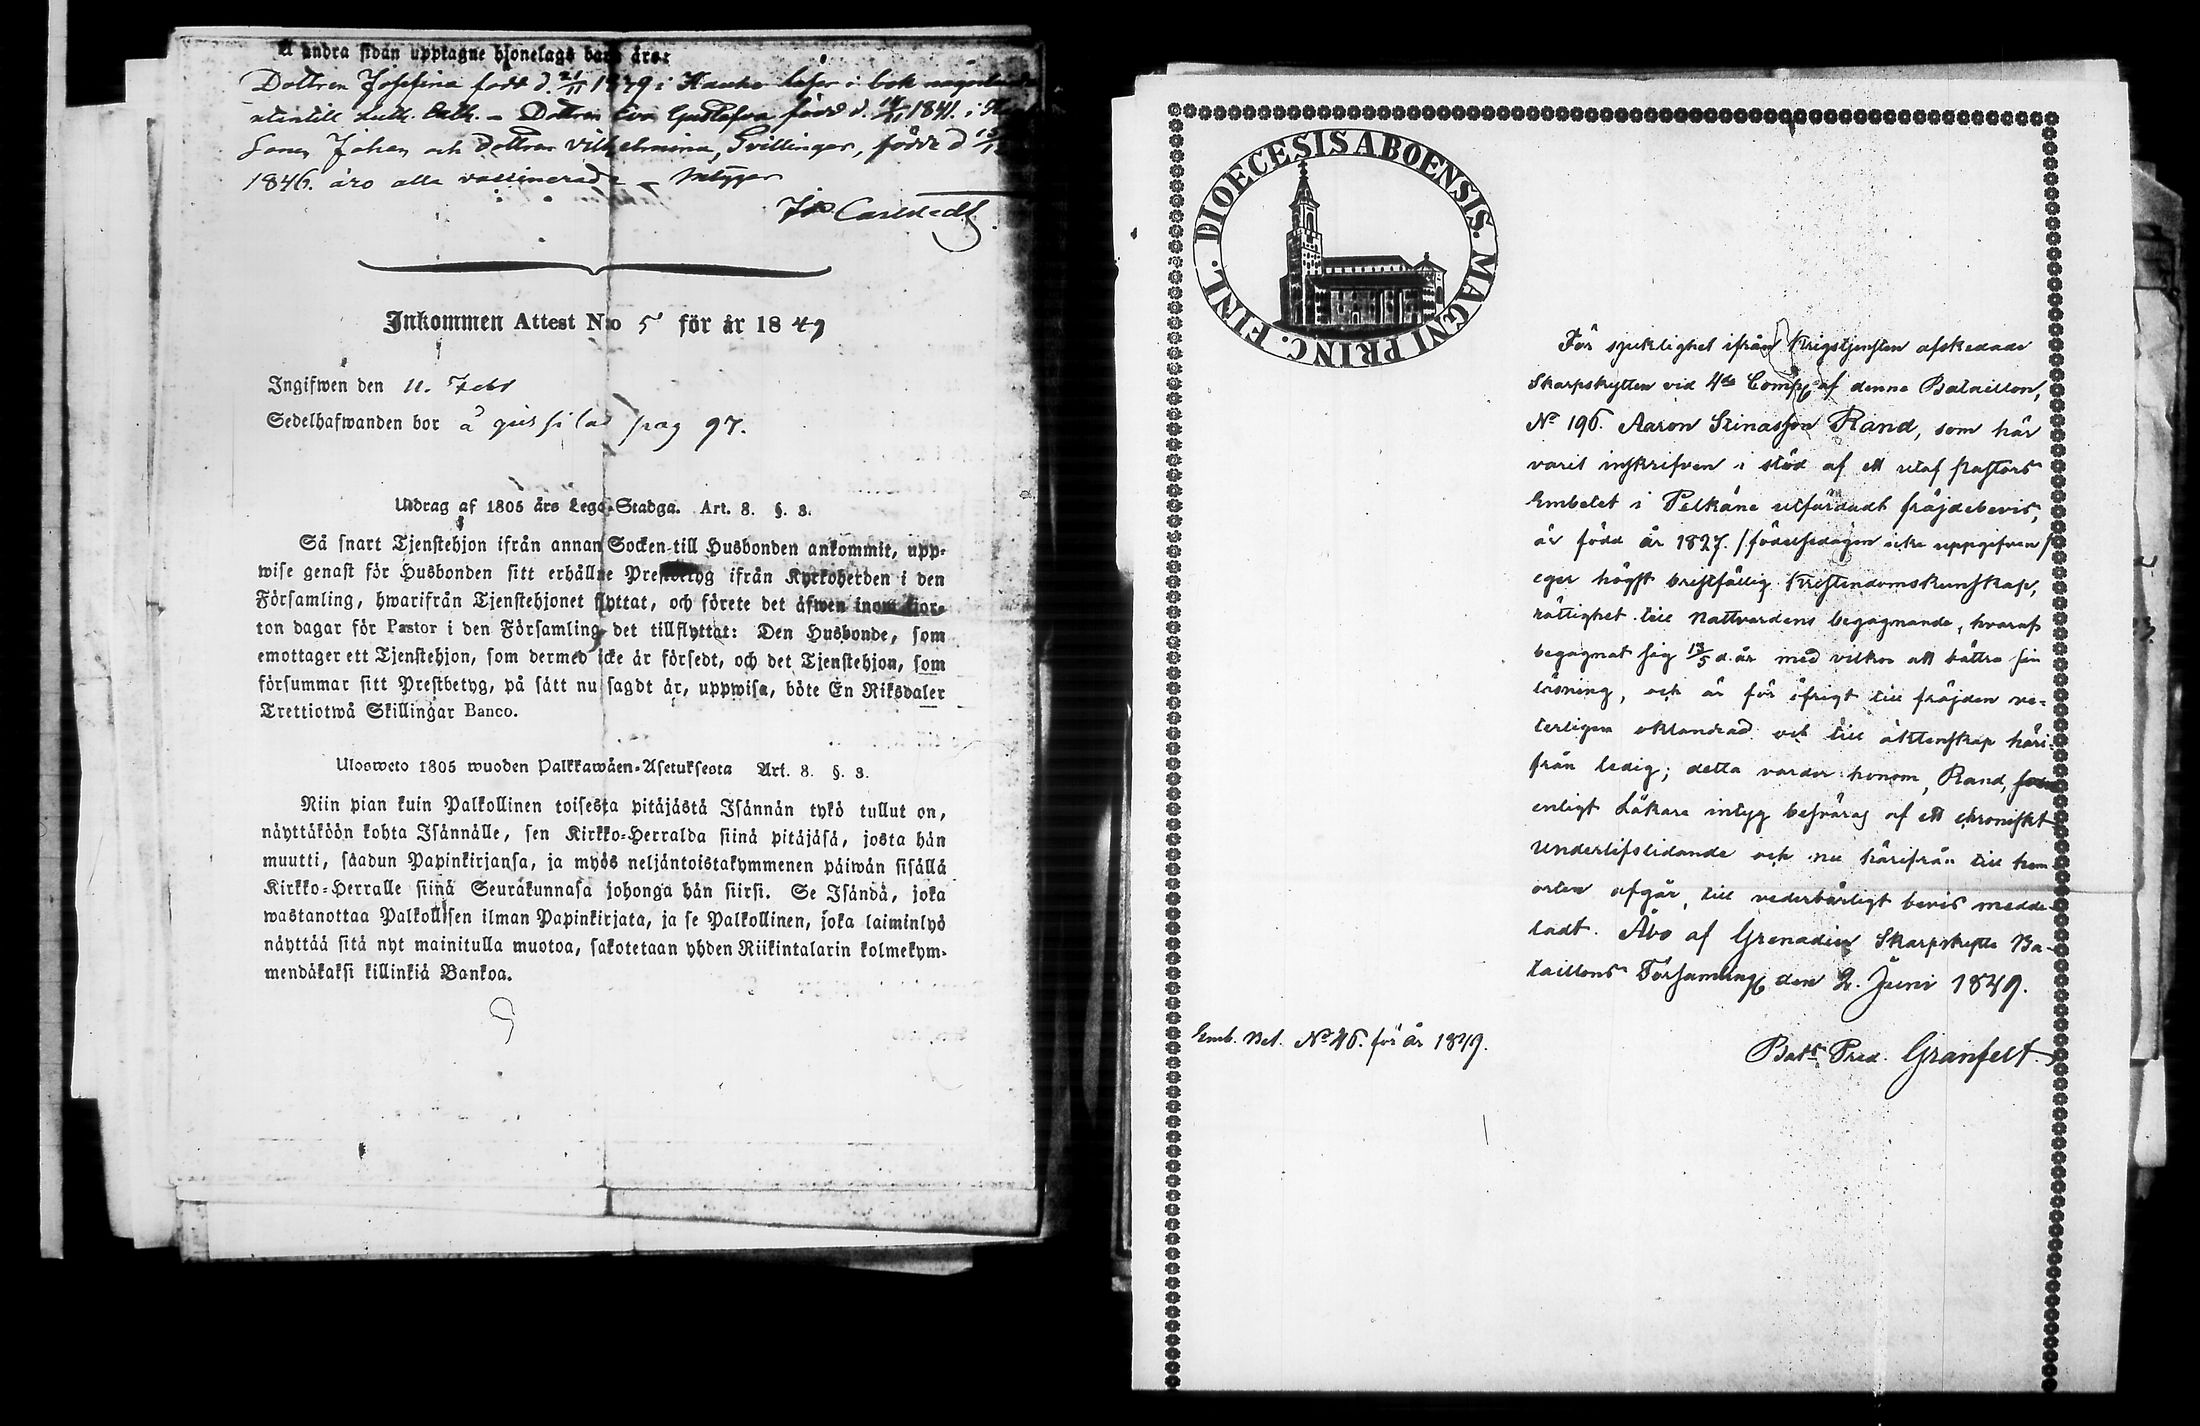 Å andra sidan upptagne hjonelags barn äro:
Dottren Josefina född d. 21/11 1839 i Hauho läser i bok någorlunda
utantill Luth. Cath. – Dottren Eva Gustafva född d. 1841. i
Sonen Johan och Dottren Vilhelmina, Tvillingar, födde d
1846. äro alla vaccinerade – Intygar
Carlstedt
Inkommen Attest N:o 5 för år 1849
Ingifwen den 11. Febr
Sedelhafwanden bor å pag 97.
Utdrag af 1805 års Lego-Stadga. Art. 8. §. 3.
Så snart Tjenstehjon ifrån annan Socken till Husbonden ankommit, upp-
wise genast för Husbonden sitt erhållne Prestbetyg ifrån Kyrkoherden i den
Församling, hwarifrån Tjenstehjonet flyttat, och förete det äfwen inom fjor-
ton dagar för Pastor i den Församling det tillflyttat: Den Husbonde, som
emottager ett Tjenstehjon, som dermed icke är försedt, och det Tjenstehjon, som
försummar sitt Prestbetyg, på sätt nu sagdt är, uppwisa, böte En Riksdaler
Trettiotwå Skillingar Banco.
Ulosweto 1805 wuoden Palkkawäen-Asetuksesta Art. 8. §. 3.
Niin pian kuin Palkollinen toisesta pitäjästä Isännän tykö tullut on,
näyttäköön kohta Isännälle, sen Kirkko-Herralda siinä pitäjäsä, josta hän
muutti, saadun Papinkirjansa, ja myös neljäntoistakymmenen päiwän sisällä
Kirkko-Herralle siinä Seurakunnasa johonga hän siirsi. Se Isändä, joka
wastanottaa Palkollisen ilman Papinkirjata, ja se Palkollinen, joka laiminlyö
näyttää sitä nyt mainitulla muotoa, sakotetaan yhden Riikintalarin kolmekym-
mendäkaksi killinkiä Bankoa.
DIOECESIS ABOENSIS. MAGNI PRINC. FINL.
För sjuklighet ifrån Krigstjensten afskedade
Skarpskytten vid 4de Comp. af denne Bataillon,
No 196. Aaron Stinasson Rand, som här
varit inskrifven i stöd af ett utaf Pastors
Embetet i Pelkäne utfärdadt fräjdebevis,
är född år 1827. /födelsedagen icke uppgifven/
eger högst bristfällig Kristendomskunskap,
rättighet till Nattvardens begagnande, hvaraf
begagnat sig 13/5 d. år med vilkor att bättra sin
läsning, och är för öfrigt till fräjden ve-
terligen oklandrad och till äktenskap häri-
från ledig; detta varder honom, Rand, som
enligt Läkare intyg besväras af ett chroniskt
Underlifslidande och nu härifrån till hem
orten afgår, till vederbörligt bevis medde-
ladt. Åbo af Grenadier Skarpskytte Ba-
taillons Församling den 2. Juni 1849.
Emb. Bet. No 46. för år 1849.
Bats Pred. Granfelt.